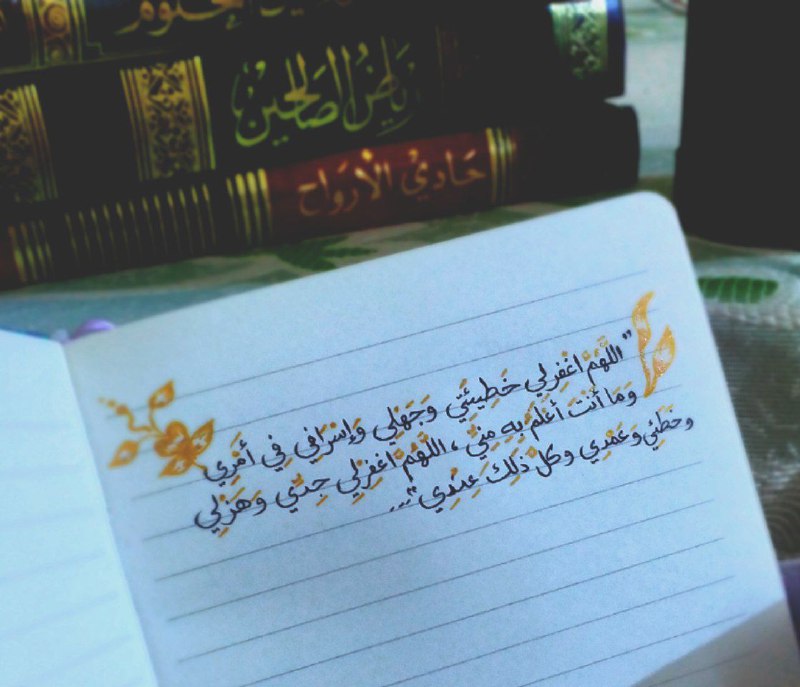 العلوم
رياض الصالحين
حادي الأرواح
"اللَّهُمَّ اغْفِرلِي خَطِيئَتِي وَجَهْلِي وَإِسْرَافِي فِي أَمْرِي
وَمَا أَنْتَ أَعْلَمُ بِهِ مِنِّي، اللَّهُمَّ اغْفِرلِي جِدِّي وَهَزْلِي
وخطئِي وَعَمْدِي وكلّ ذَلِكَ عِنْدِي"...